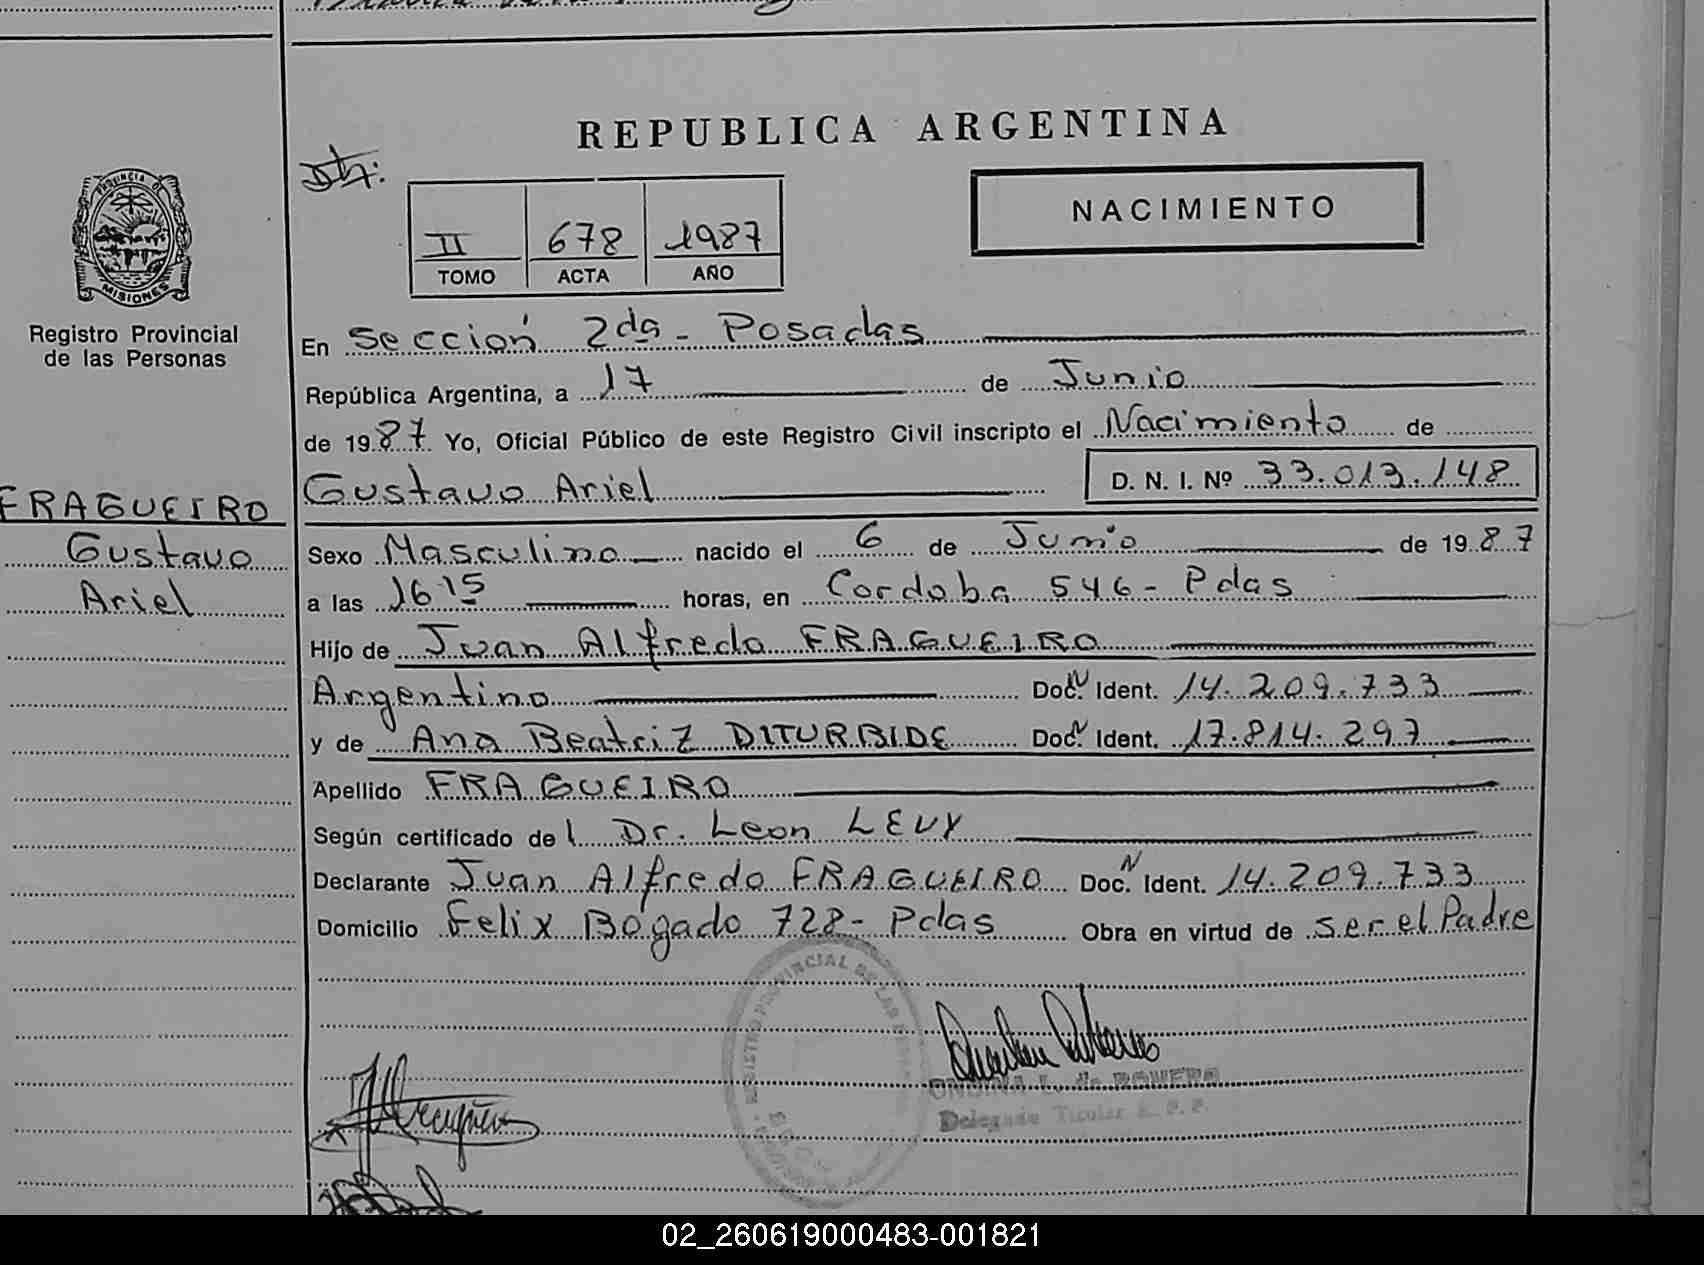 REPUBLICA ARGENTINA
NACIMIENTO
II 678 1987
TOMO ACTA AÑO
PROVINCIA DE
MISIONES
Registro Provincial
de las Personas
En Sección 2da - Posadas
República Argentina, a 17 de Junio
de 1987. Yo, Oficial Público de este Registro Civil inscripto el Nacimiento de
Gustavo Ariel D. N. I. Nº 33.013.148
FRAGUEIRO
Gustavo
Ariel
Sexo Masculino nacido el 6 de Junio de 1987
a las 16 15 horas, en Cordoba 546 - Pdas
Hijo de Juan Alfredo FRAGUEIRO
Argentino Doc. N Ident. 14.209.733
y de Ana Beatriz DITURBIDE Doc. N Ident. 17.814.297
Apellido FRAGUEIRO
Según certificado del Dr. Leon LEVY
Declarante Juan Alfredo FRAGUEIRO Doc. N Ident. 14.209.733
Domicilio Felix Bogado 728 - Pdas Obra en virtud de ser el Padre
REGISTRO PROVINCIAL DE LAS
ONDINA L. de ROMERO
Delegada Titular R. P. P.
02_260619000483-001821